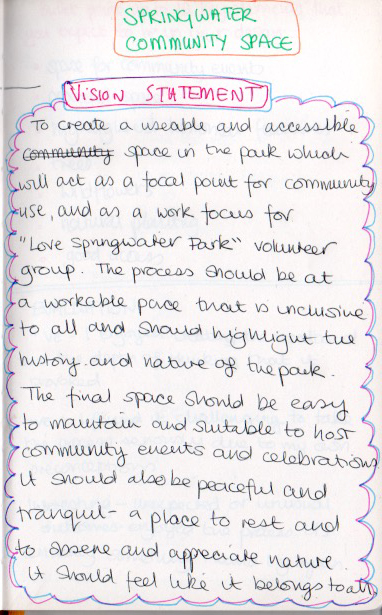 SPRINGWATER
COMMUNITY SPACE
VISION STATEMENT
To create a useable and accessible
~~community~~ space in the park which
will act as a focal point for community
use, and as a work focus for
"Love Springwater Park" volunteer
group. The process should be at
a workable pace that is inclusive
to all and should highlight the
history and nature of the park.
The final space should be easy
to maintain and suitable to host
community events and celebrations
It should also be peaceful and
tranquil - a place to rest and
to observe and appreciate nature.
It should feel like it belongs to all.